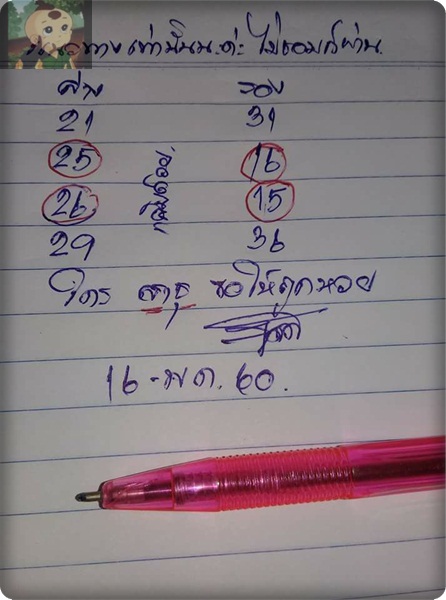 เท่านั้นนะค่ะ ไม่ชอบก็ผ่าน
ล่าง รอง
21 31
25 16
กลับด้วย
26 15
29 36
ใคร สาธุ ขอให้ถูกหวย
16 - พ.ค. 60.